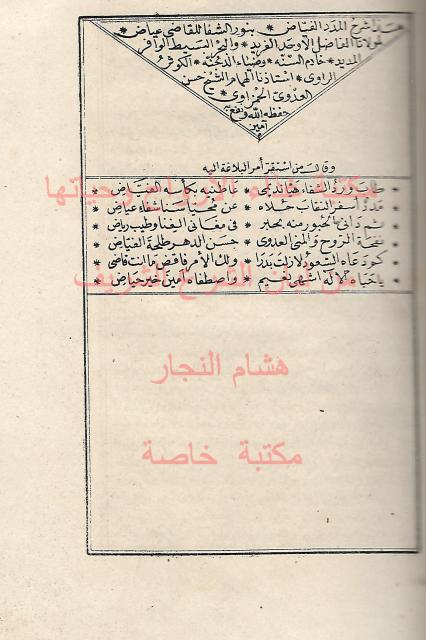 هذا شرح المدد الفياض * بنور الشفا للقاضي عياض *
لمولانا الفاضل الأوحد الفريد * والبحر البسيط الوافر
المديد * خادم السنه * وضياء الدجنة * الكوثر
الراوى * استاذنا الهمام الشيخ حسن
العدوى الحمزاوى *
حفظه الله ونفع به
آمين
وقال من استقر أمر البلاغة اليه
* طاب ورد الشفاء * بكأسه الفياض *
* أسفر النقاب جلاه * عن محيا سنا شفاء عياض *
* منه * فى معانى الغنا وطيب رياض
* نفحة الروح والمنى العدوى * حسن الدهر طلحة الفياض *
* السعود لازلت بدرا * ولك الأمر فاقض ما أنت قاضى *
* اشهى نعيم * واصطفاه آمين خير *
من لبان الشرع الشريف
هشام النجار
مكتبة خاصة